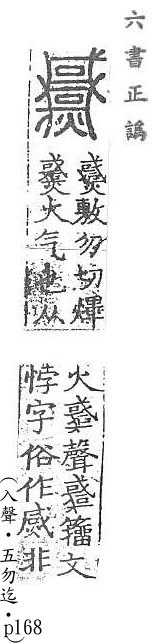 六書正譌
敷勿切煇
火气也从
火聲籀文
悖字俗作非
(入聲・五勿迄・p168